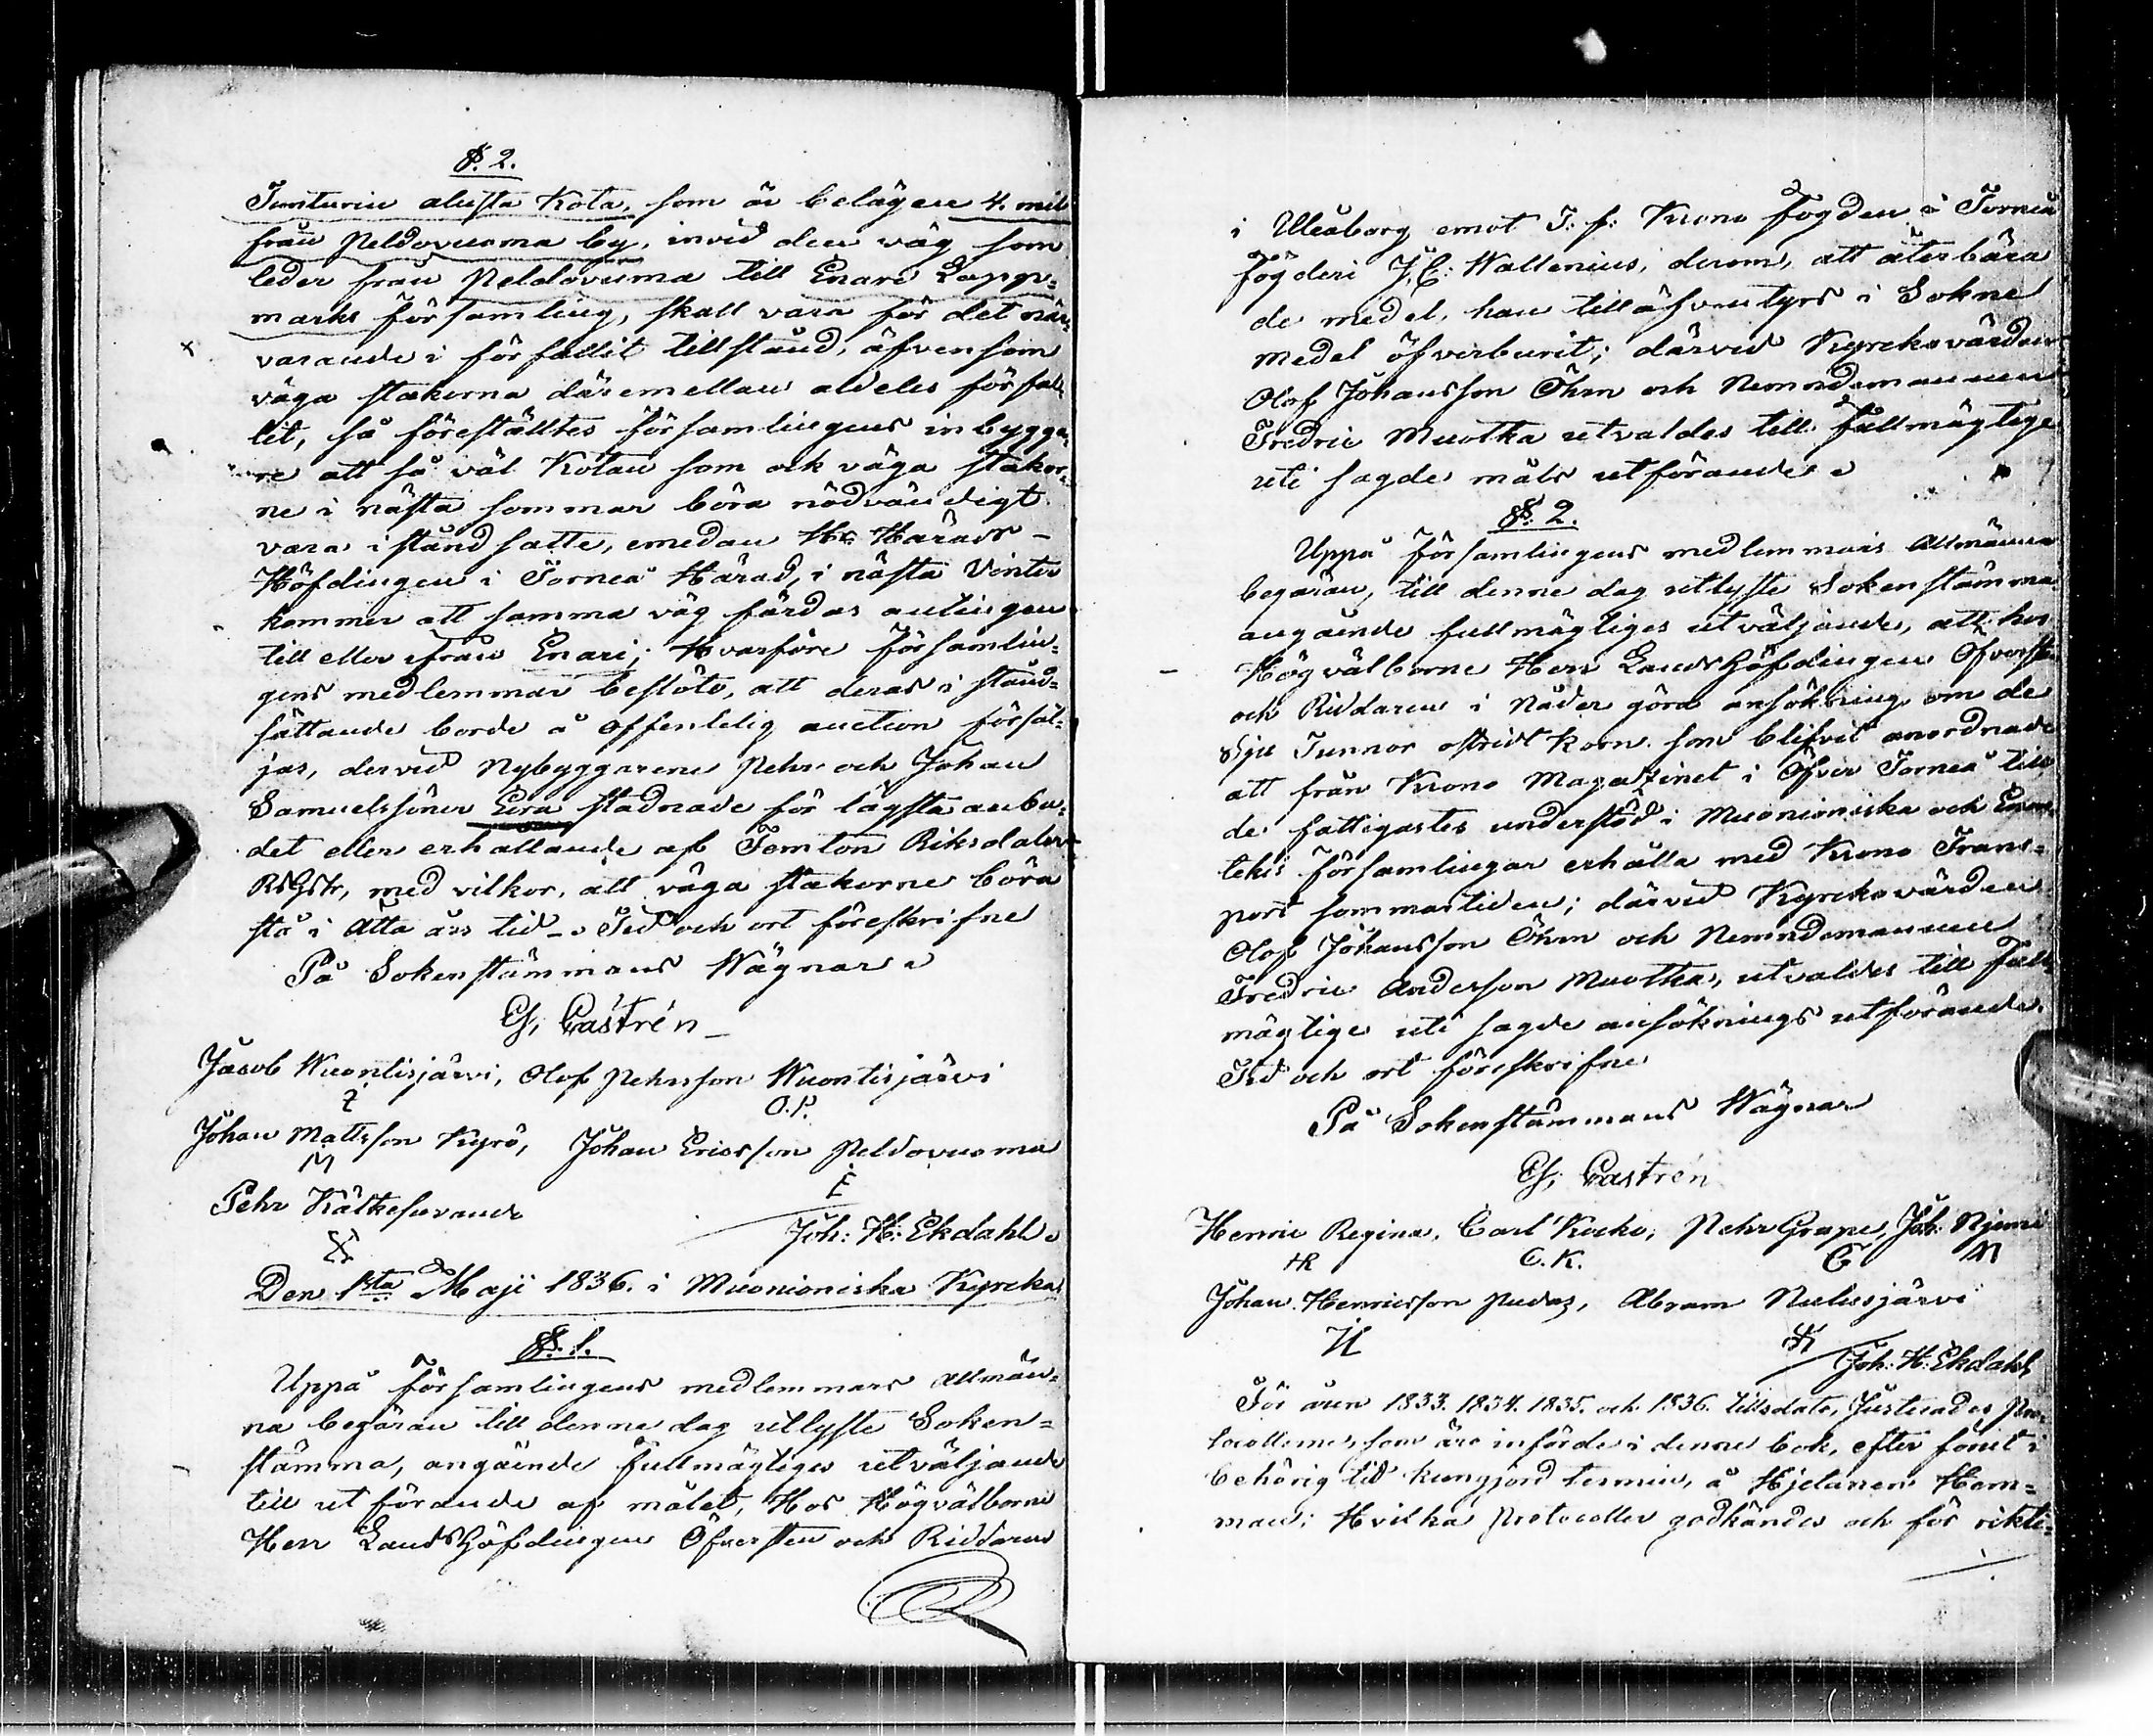 §. 2.
Tunturin alusta Kota, som är belägen 4. mil
från Peldovuoma by, invid den väg som
leder från Peldovuoma till Enare Lapp-
marks församling, skall vara för det när-
varande i förfallit tillstånd, äfvensom
väga stakorna däremellan aldeles förfal-
lit, så förestältes församlingens inbygga-
re att så väl Kotan som ock väga stakor-
ne i nästa sommar böra nödvändigt
vara i stånd satte, emedan Hr Härads-
Höfdingen i Torneå Härad, i nästa Vinter
kommer att samma väg färdas antingen
till eller ifrån Enari; Hvarföre församlin-
gens medlemmar beslöto, att deras i stånd-
sättande borde å offentelig auction försäl-
jas, dervid Nybyggarene Pehr och Johan
Samuelssöner Eira stadnade för lägsta anbu-
det eller erhallande af Femton Riksdaler
RSGSt, med vilkor, att väga stakorne böra
stå i Åtta års tid. Tid och ort föreskrifne
På Sokenstämmans Wägnar
Castrén
Jacob Wuontisjärvi, Olof Pehrsson Wuontisjärvi
O.P.
Johan Mattsson Kyrö, Johan Ericsson Peldovuoma
M E
Pehr Kätkesuvando
Joh: H: Ekdahl
Den 1sta Maji 1836. i Muonioniska Kyrcka
§. 1.
Uppå församlingens medlemmars Allmän-
na begäran till denne dag utlyste Soken-
stämma, angående fullmägtiges utväljande
till utförande af målet, Hos Högvälborne
Herr LandsHöfdingen Öfversten och Riddaren
i Uleåborg emot T. f: Krono Fogden i Torneå
Fögderi J, C: Wallenius, derom, att återbära
de medel, han till äfventyrs i Sokne
medel öfverburit; därvid Kyrckovärden
Olof Johansson Öhm och Nemndemannen
Fredric Muotka utvaldes till Fullmägtige
uti sagde måls utförande
§. 2.
Uppå församlingens medlemmars Allmänna
begäran, till denne dag utlyste Sokenstämma
angående fullmägtiges utväljande, att hos
Högvälborne Herr LandsHöfdingen Öfversten
och Riddaren i Nåder göra ansökning om de
Sju Tunnor ostridt Korn som blifvit anordnade
att från Krono Magazinet i Öfver Torneå till
de fattigastes understöd i Muonioniska och Enon-
tekis församlingar erhålla med Krono Trans-
port sommartiden; därvid Kyrckovärden
Olof Johansson Öhm och Nemndemannen
Fredric Anderson Muotka, utvaldes till Full-
mägtige uti sagde ansöknings utförande.
Tid och ort föreskrifne
På Sokenstämmans Wägnar
Castrén
Henric Regina, Carl Kocko, Pehr Grape, Joh:
HR C.K. G
Johan Henricsson Pudas, Abram Nulusjärvi
Joh: H: Ekdahl
För åren 1833. 1834. 1835. och 1836. till dato, Justerades Pro-
tocollerne, som äro införde i denne bok, efter förut i
behörig tid kungjord termin, å Hjetanen Hem-
man; Hvilka Protocoller godkändes och för rikti-